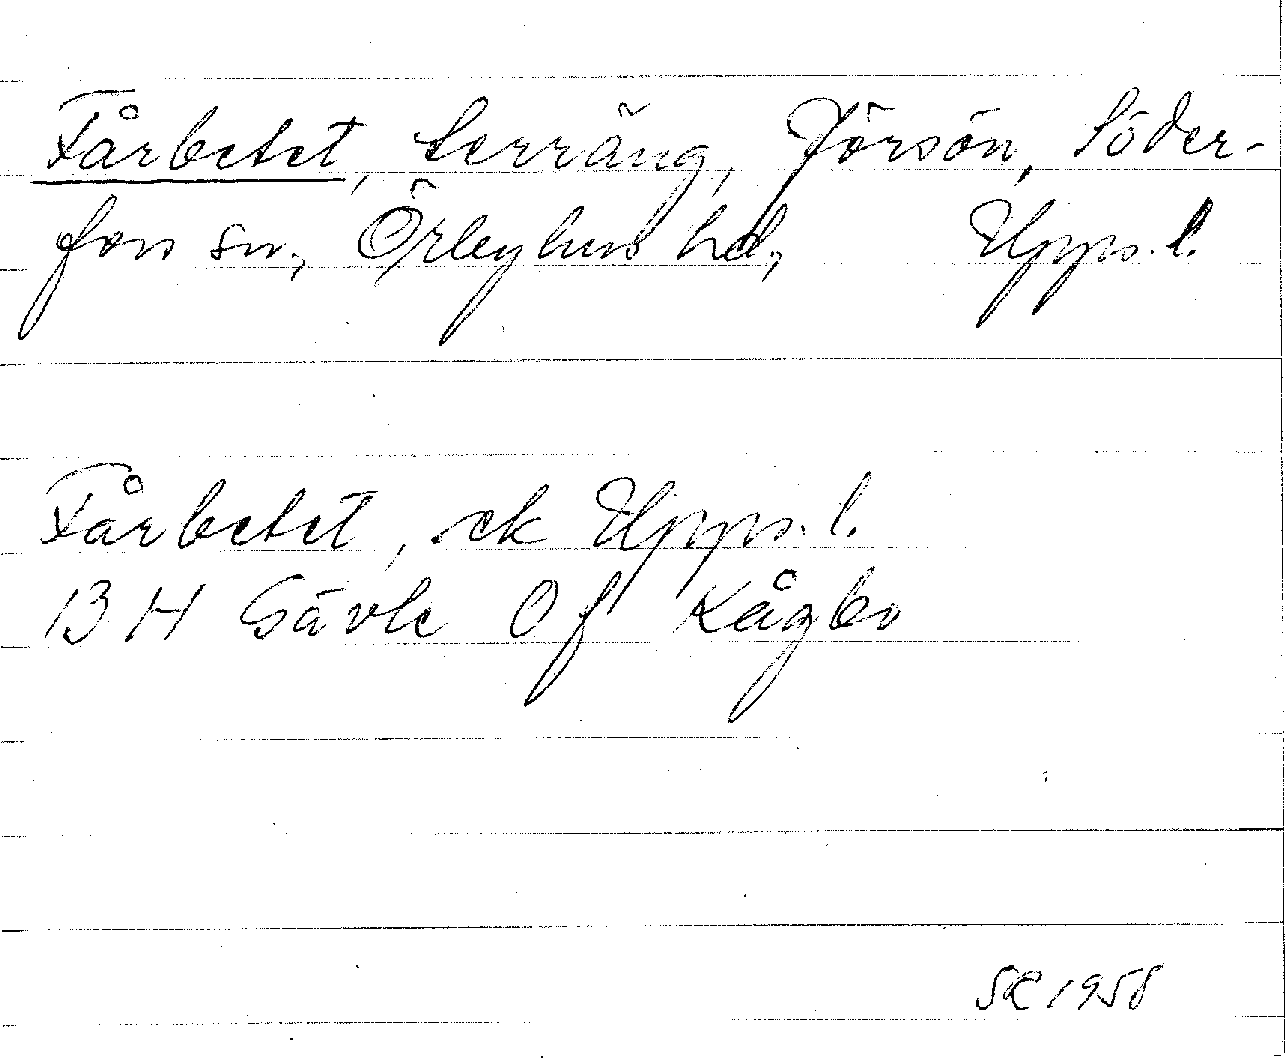 Fårbetet, terräng, Jörsön, Söder-
fors sn., Örbyhus hd, Upps. l.
Fårbetet, ek Upps. l.
13 H Gävle 0 f Kågbo
SR 1958